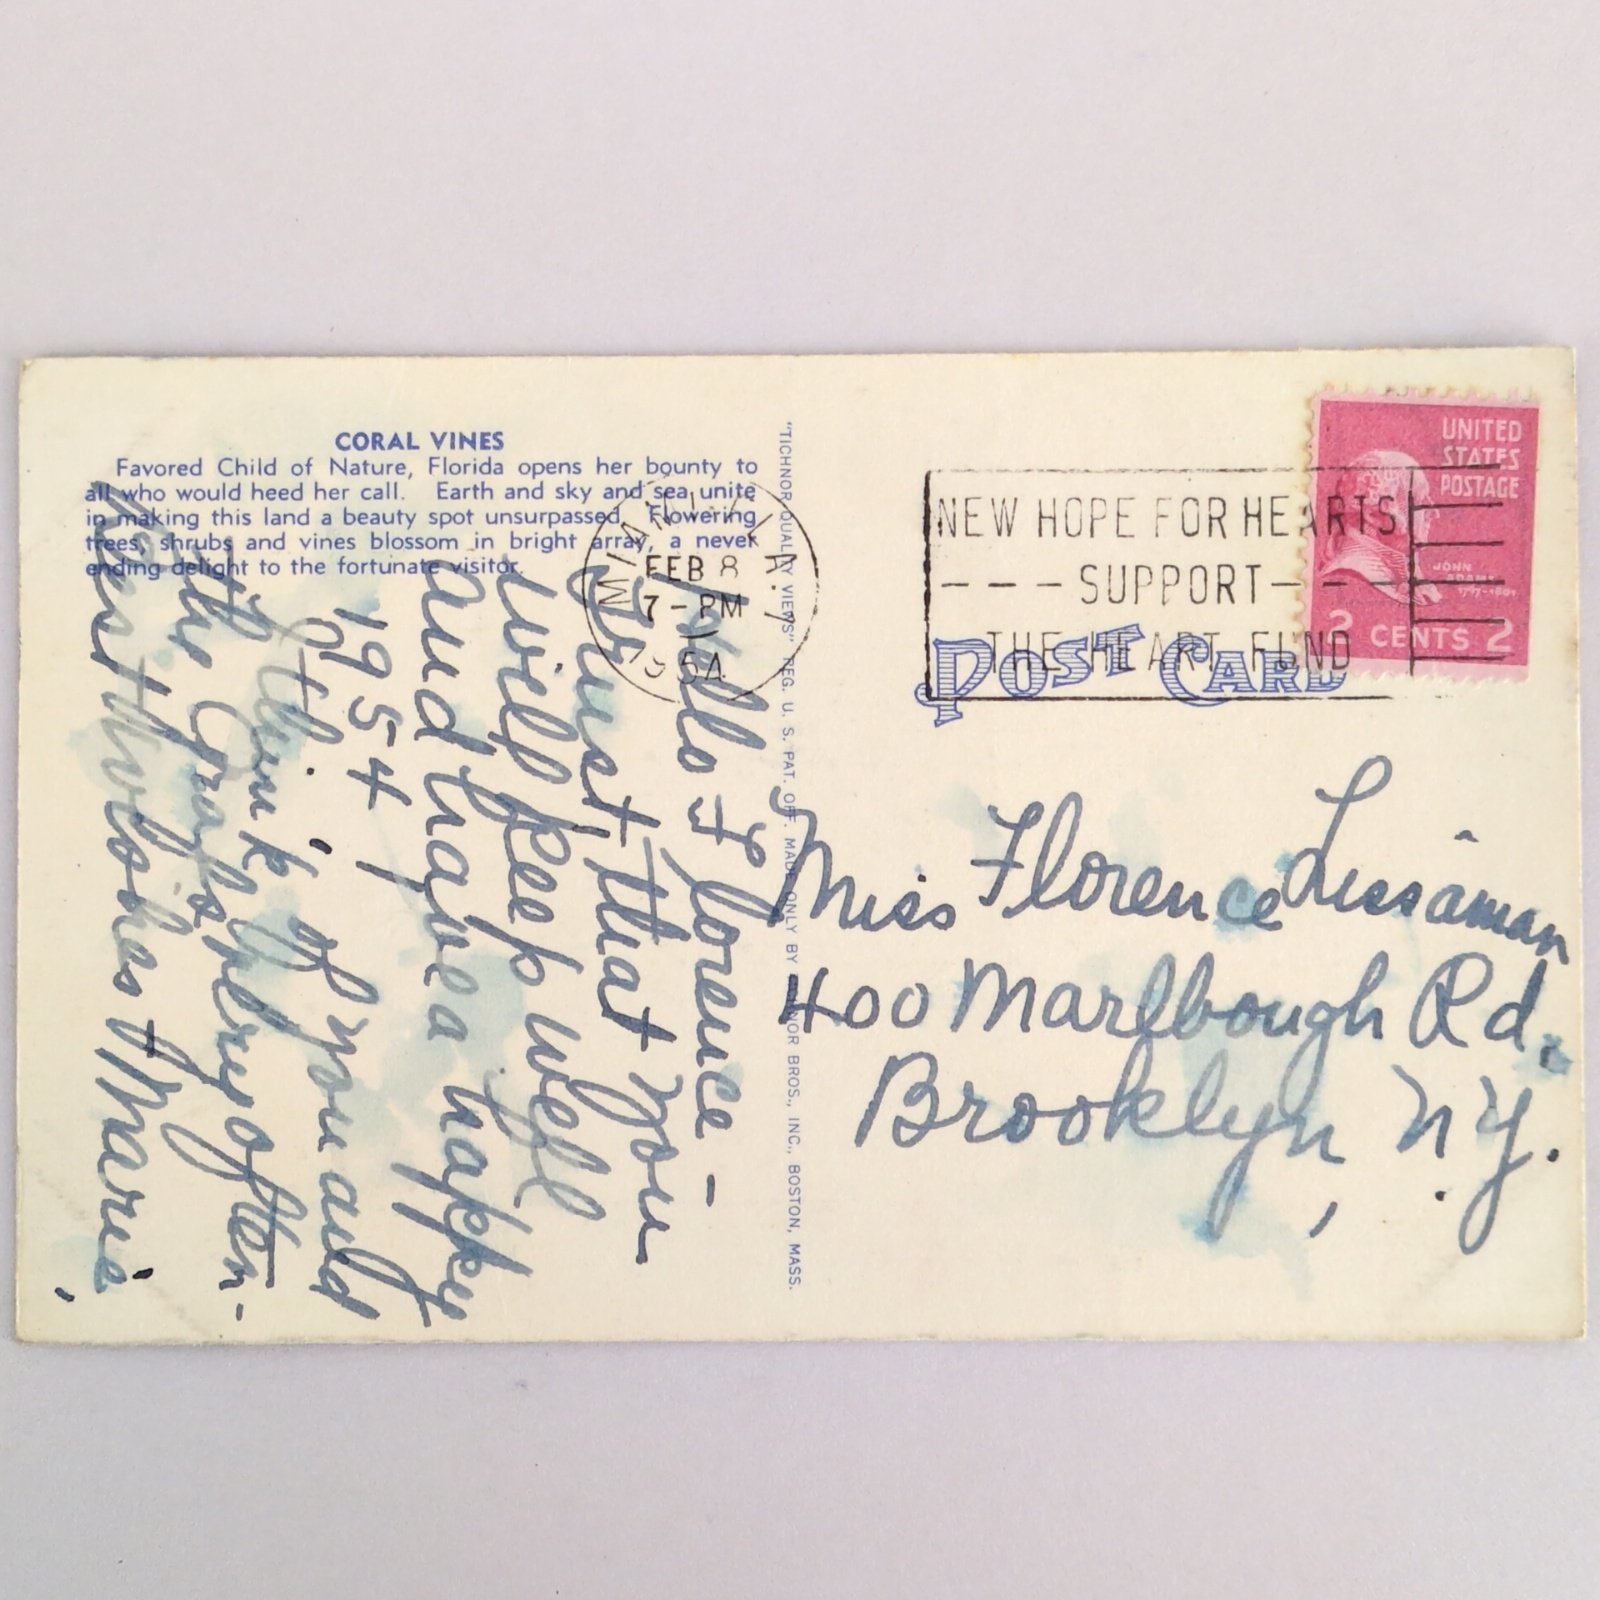 CORAL VINES
Favored Child of Nature, Florida opens her bounty to
all who would heed her call. Earth and sky and sea unite
in making this land a beauty spot unsurpassed. Flowering
trees, shrubs and vines blossom in bright array, a never
ending delight to the fortunate visitor.
Hello Florence -
Trust that you
will keep well
and have a happy
1954
I think of you and
the Craigs very often -
Best wishes + Marie
"TICHNOR QUALITY VIEWS" REG. U. S. PAT. OFF. MADE ONLY BY TICHNOR BROS., INC., BOSTON, MASS.
MIAMI, FLA.
FEB 8
7 - PM
1954
NEW HOPE FOR HEARTS
- - - SUPPORT - - -
THE HEART FUND
UNITED
STATES
POSTAGE
JOHN
ADAMS
1797-1801
2 CENTS 2
POST CARD
Miss Florence Lissaman
400 Marlbough Rd.
Brooklyn, N.Y.